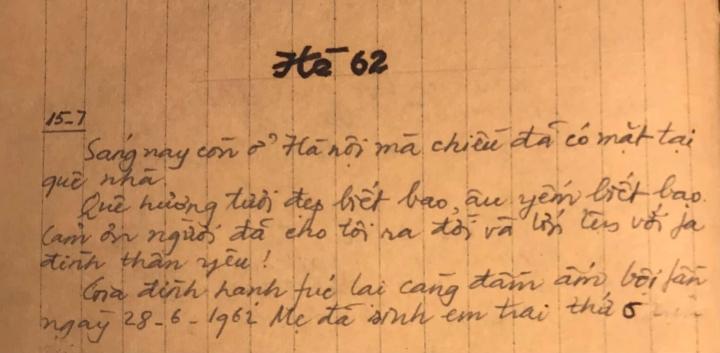 Hè 62
15-7
Sáng nay còn ở Hà nội mà chiều đã có mặt tại
quê nhà.
Quê hương tươi đẹp biết bao, âu yếm biết bao.
Cảm ơn người đã cho tôi ra đời và lớn lên với ja
đình thân yêu!
Gia đình hạnh fúc lại càng đầm ấm bội fần
ngày 28-6-1962 Mẹ đã sinh em trai thứ 5